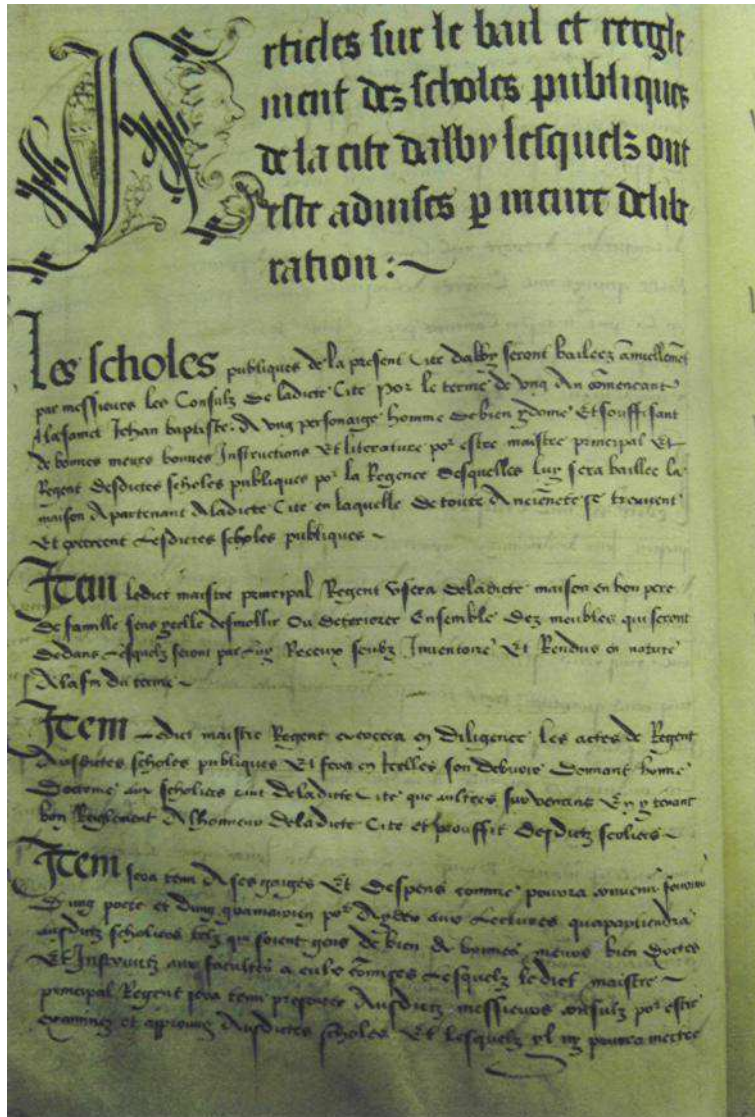 Articles sur le bail et reegle
ment dez scholes publiques
de la cite dalby lesquelz ont
este advises p meure delibe
ration :~
Les scholes publiques de la present Cite dalby seront bailees annuellemet
par messieurs les Consulz de ladicte Cite por le terme de ung An comencant
A la sainct Jehan baptiste. A ung personaige homme de bien ydoine Et souffisant
de bonnes meurs bonnes Instructions Et literature por estre maistre principal Et
Regent desdictes scholes publiques por la Regence desquelles luy sera baillee la
maison Apartenant A ladicte Cite en laquelle de toute Anciennete se treuvent
Et exercent Lesdictes scholes publiques ~
Item ledict maistre principal Regent Usera de ladicte maison en bon pere
de famille sens ycelle desmollir Ou deteriorer Ensemble dez meubles qui seront
dedans Lesquelz seront par Luy Receux soubz Inventoire Et Rendus en nature
A la fin du terme ~
Item Ledict maistre Regent exercera en Diligence les actes de Regent
Ausdictes scholes publiques Et fera en Icelles son debvoir Donnant bonne
Doctrine aux scholiers tant de ladicte Cite que aultres survenens Et y tenant
bon Reiglement A lhonneur de ladicte Cite et prouffit Desdictz scoliers ~
Item sera tenu A ses gaiges Et Despens comme pourra convenir fournir
Dung poete et dung gramairien por Ayder aux Lectures
ausdictz scholiers telz qui soient gens de bien de bonnes meurs bien Doctes
Et Instruictz aux facultes a eulx comises Lesquelz le dict maistre ~
principal Regent sera tenu presenter Ausdictz messieurs consulz por estre
examinez et approuvez Ausdictes scholes Et lesquelz yl ny pourra mettre